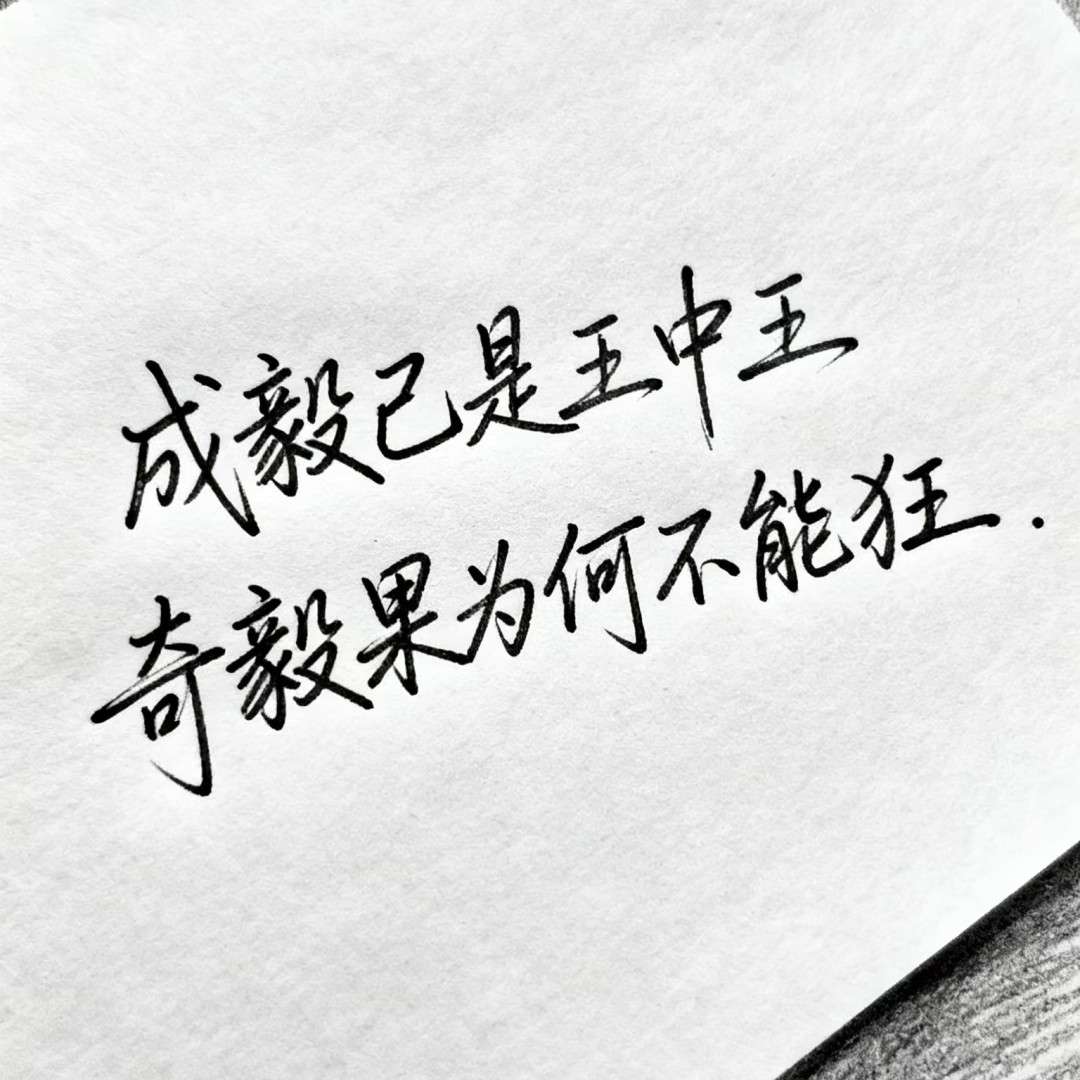 成毅已是王中王
奇毅果为何不能狂.